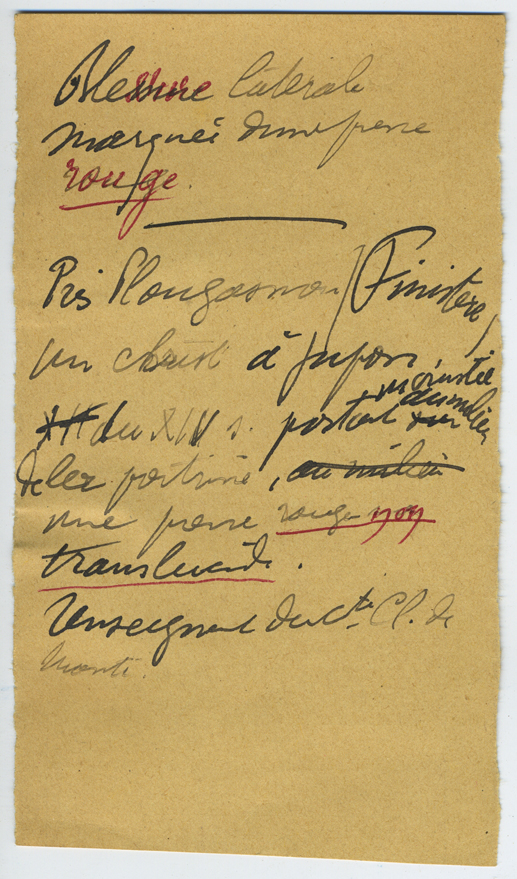 Blessure latérale
marquée d'une pierre
rouge.
Près Plougasnou (Finistère)
un christ à jupon,
XII du XIV s. portant incrustée au milieu sur
de la poitrine, au milieu
une pierre rouge non
translucide.
Renseignement du Cte Cl. de
Monti.